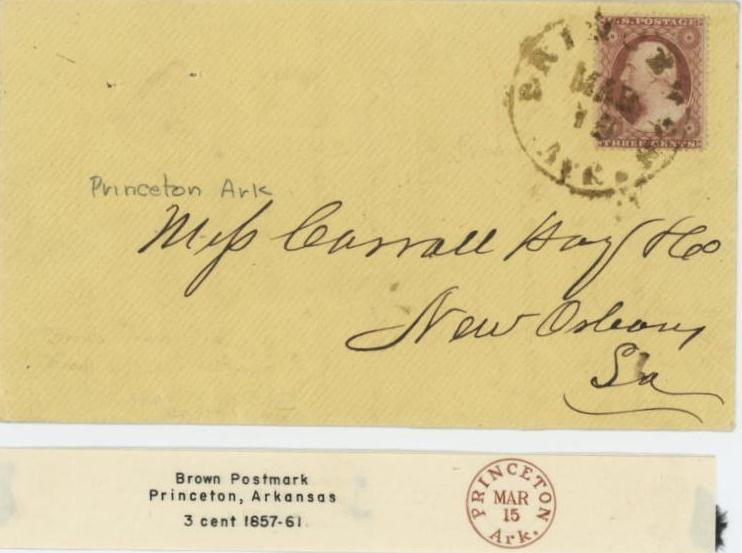 U.S. POSTAGE
THREE CENTS
PRINCETON
MAR
15
ARK.
Princeton Ark
Mess Carroll Hoy & Co
New Orleans
La
Brown Postmark
Princeton, Arkansas
3 cent 1857-61
PRINCETON
MAR
15
Ark.